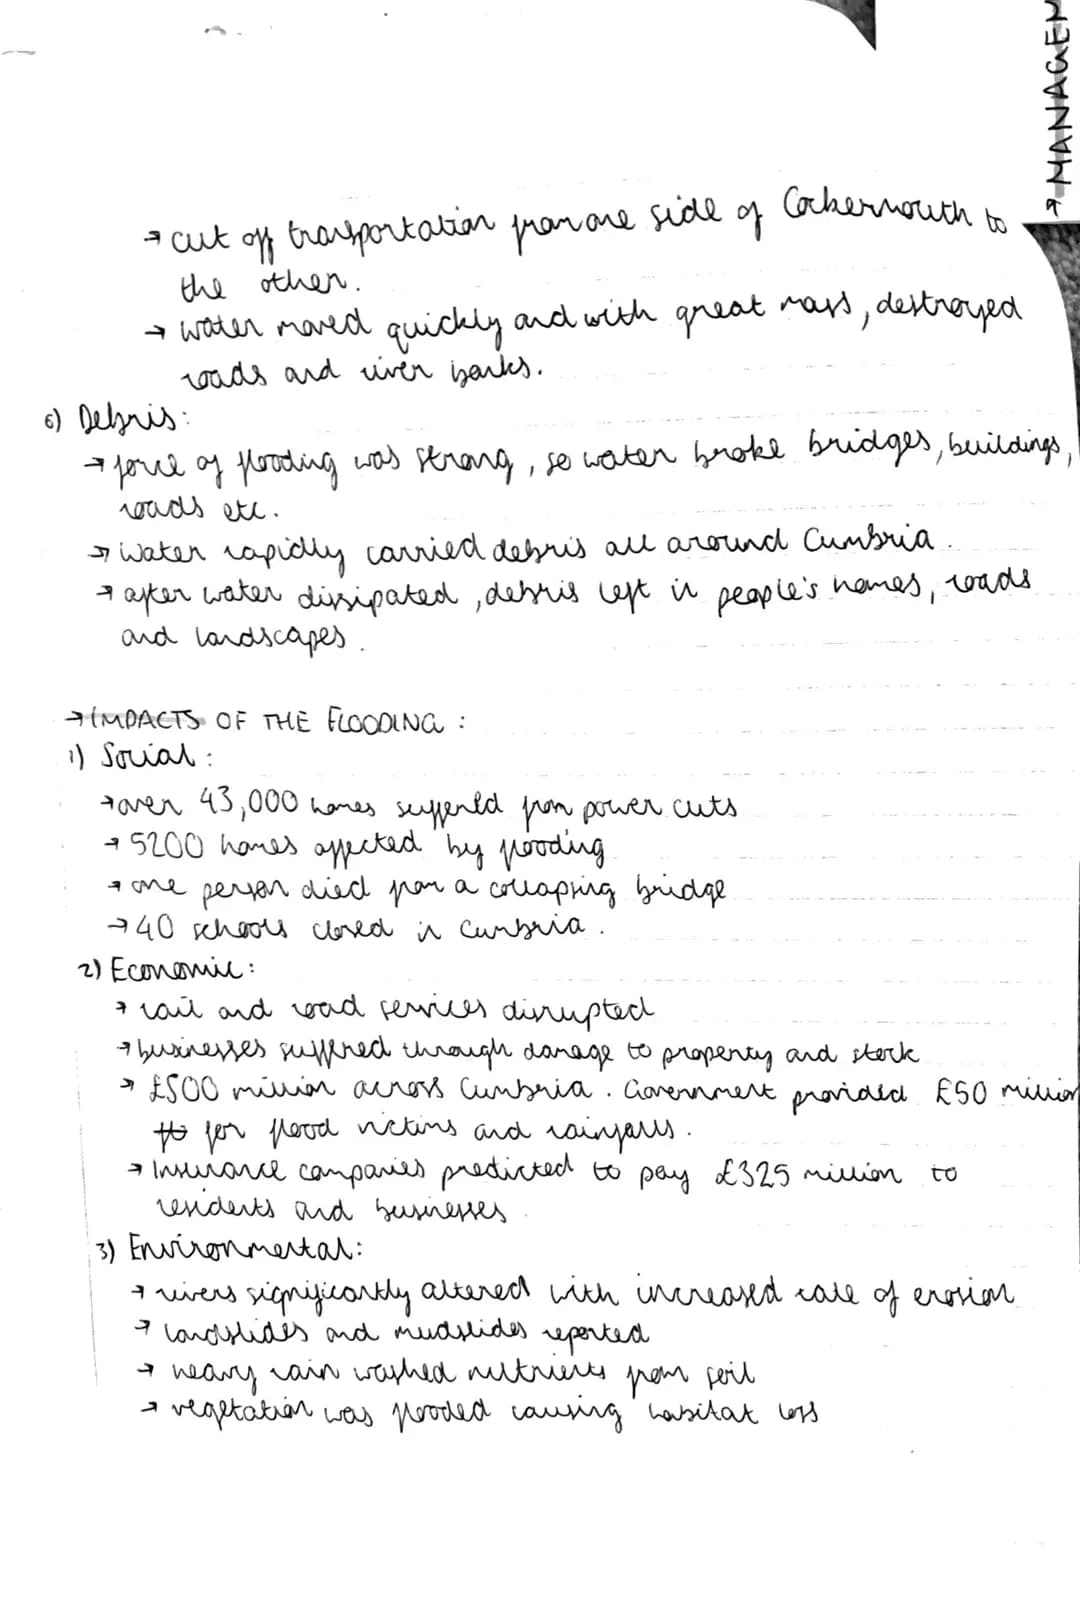 → MANAGEM
→ cut off transportation from one side of Cockermouth to
the other.
→ water moved quickly and with great mass, destroyed
roads and river banks.
6) Debris:
→ force of flooding was strong, so water broke bridges, buildings,
roads etc.
→ Water rapidly carried debris all around Cumbria.
→ after water dissipated, debris left in people's homes, roads
and landscapes.
→ IMPACTS OF THE FLOODING :
1) Social :
→ over 43,000 homes suffered from power cuts
→ 5200 homes affected by flooding
→ one person died from a collapsing bridge
→ 40 schools closed in Cumbria.
2) Economic:
→ rail and road services disrupted
→ businesses suffered through damage to property and stock
→ £500 million across Cumbria. Government provided £50 million
for flood victims and rainfalls.
→ Insurance companies predicted to pay £325 million to
residents and businesses.
3) Environmental:
→ rivers significantly altered with increased rate of erosion
→ landslides and mudslides reported
→ heavy rain washed nutrients from soil
→ vegetation was flooded causing habitat loss